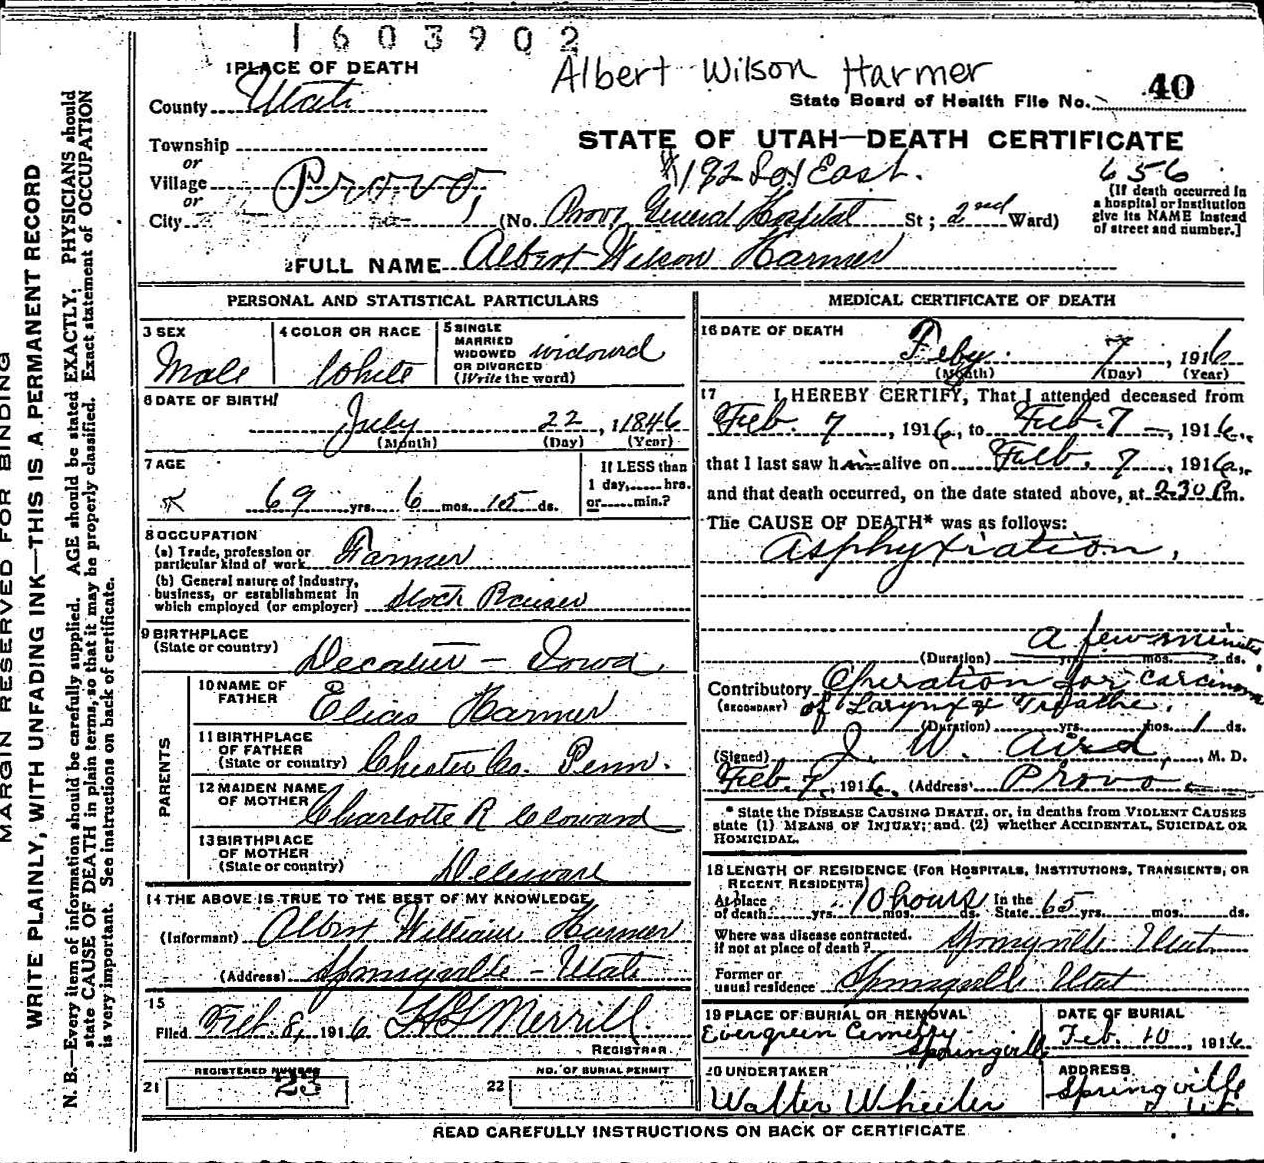 1603902
Albert Wilson Harmer
1 PLACE OF DEATH
County Utah
State Board of Health File No. 40
STATE OF UTAH—DEATH CERTIFICATE
Township
or
Village
or
City Provo,
192 So 1 East.
656
(No. Provo General Hospital St; 2nd Ward)
[If death occurred in
a hospital or institution
give its NAME instead
of street and number.]
2 FULL NAME Albert Wilson Harmer
PERSONAL AND STATISTICAL PARTICULARS
3 SEX
Male
4 COLOR OR RACE
White
5 SINGLE
MARRIED
WIDOWED
OR DIVORCED
(Write the word)
widowed
6 DATE OF BIRTH
July 22, 1846
(Month) (Day) (Year)
7 AGE
69 yrs. 6 mos. 15 ds.
If LESS than
1 day, hrs.
or min.?
8 OCCUPATION
(a) Trade, profession or
particular kind of work Farmer
(b) General nature of Industry,
business, or establishment in
which employed (or employer) Stock Raiser
9 BIRTHPLACE
(State or country) Decatur - Iowa.
PARENTS
10 NAME OF
FATHER Elias Harmer
11 BIRTHPLACE
OF FATHER
(State or country) Chester Co. Penn.
12 MAIDEN NAME
OF MOTHER Charlotte R Cloward
13 BIRTHPLACE
OF MOTHER
(State or country) Deleware
14 THE ABOVE IS TRUE TO THE BEST OF MY KNOWLEDGE
(Informant) Albert William Harmer
(Address) Springville - Utah
15
Filed Feb. 8, 1916 Merrill.
REGISTRAR
21 REGISTERED NUMBER
23
22 NO. OF BURIAL PERMIT
MEDICAL CERTIFICATE OF DEATH
16 DATE OF DEATH
Feby. 7, 1916
(Month) (Day) (Year)
17 I HEREBY CERTIFY, That I attended deceased from
Feb. 7, 1916, to Feb. 7 -, 1916.,
that I last saw him alive on Feb. 7, 1916,
and that death occurred, on the date stated above, at 2:30 P.m.
The CAUSE OF DEATH* was as follows:
Asphyxiation,
a few minutes
(Duration) yrs. mos. ds.
Contributory Operation for Carcinoma
(SECONDARY) of Larynx & Treathe.
(Duration) yrs. mos. 1 ds.
(Signed) J. W. Aird, M. D.
Feb. 7, 1916. (Address) Provo
* State the DISEASE CAUSING DEATH, or, in deaths from VIOLENT CAUSES
state (1) MEANS OF INJURY; and (2) whether ACCIDENTAL, SUICIDAL OR
HOMICIDAL.
18 LENGTH OF RESIDENCE (FOR HOSPITALS, INSTITUTIONS, TRANSIENTS, OR
RECENT RESIDENTS)
At place
of death yrs. 10 hours mos. ds. In the
State 65 yrs. mos. ds.
Where was disease contracted.
if not at place of death? Springville Utah
Former or
usual residence Springville Utah
19 PLACE OF BURIAL OR REMOVAL
Evergreen Cemetry
Springville
DATE OF BURIAL
Feb. 10, 1916
20 UNDERTAKER
Walter Wheeler
ADDRESS
Springville
Ut.
READ CAREFULLY INSTRUCTIONS ON BACK OF CERTIFICATE
MARGIN RESERVED FOR BINDING
WRITE PLAINLY, WITH UNFADING INK—THIS IS A PERMANENT RECORD
N. B.—Every item of information should be carefully supplied. AGE should be stated EXACTLY. PHYSICIANS should
state CAUSE OF DEATH in plain terms, so that it may be properly classified. Exact statement of OCCUPATION
is very important. See instructions on back of certificate.